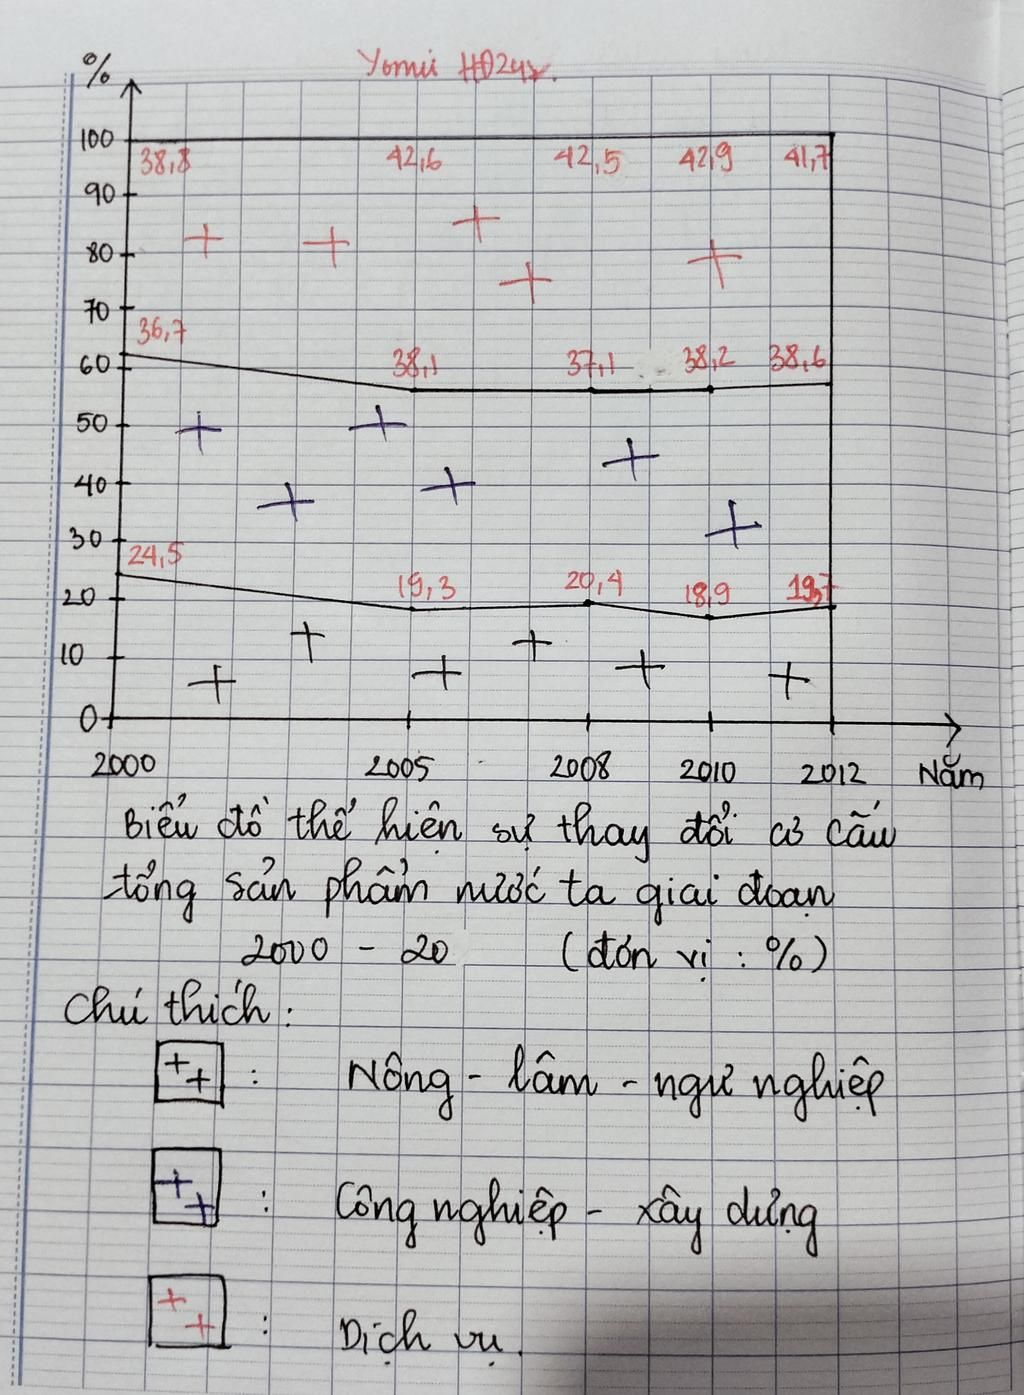 %
Yomii HĐ247.
100
38,8 42,6 42,5 42,9 41,7
90
80
70
36,7
60 38,1 37,1 38,2 38,6
50
40
30
24,5
20 19,3 20,4 18,9
10
0
2000 2005 2008 2010 2012 Năm
Biểu đồ thể hiện sự thay đổi cơ cấu
tổng sản phẩm nước ta giai đoạn
2000 - 20 (đơn vị : %)
Chú thích :
: Nông - lâm - ngư nghiệp
: Công nghiệp - xây dựng
: Dịch vụ.